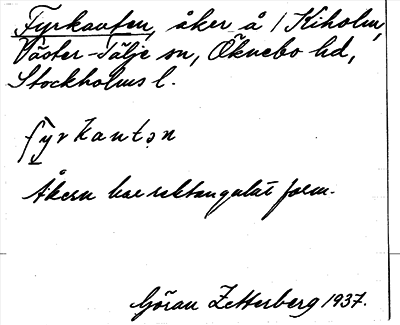 Fyrkanten, åker å 1 Kiholm,
Väster-Tälje sn, Öknebo hd,
Stockholms l.
fyrkantən
Åkern har rektangulär form.
Göran Zetterberg 1937.